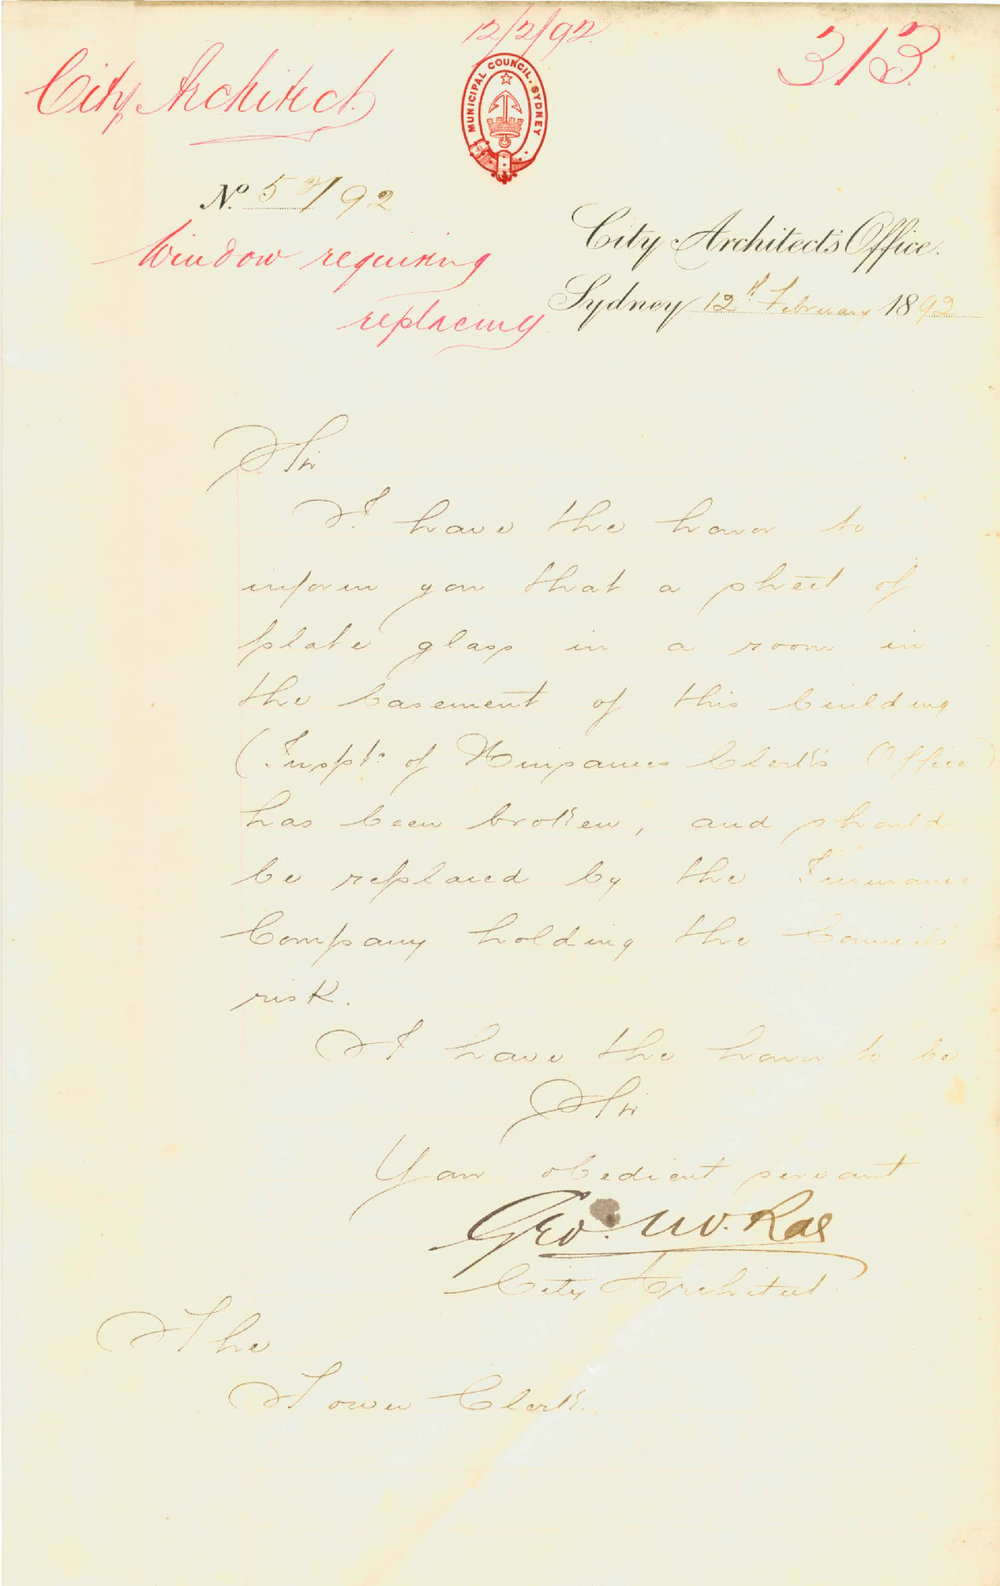 12/2/92.
313
City Architect.
MUNICIPAL COUNCIL. SYDNEY
No. 52/92
Window requiring
replacing
City Architect's Office.
Sydney 12th February 1892
Sir
I have the honor to
inform you that a sheet of
plate glass in a room in
the basement of this building
(Inspr. of Nuisances Clerk's Office)
has been broken, and should
be replaced by the Insurance
Company holding the Council's
risk.
I have the honor to be
Sir
Your obedient servant
Geo. McRae
City Architect.
The
Town Clerk.